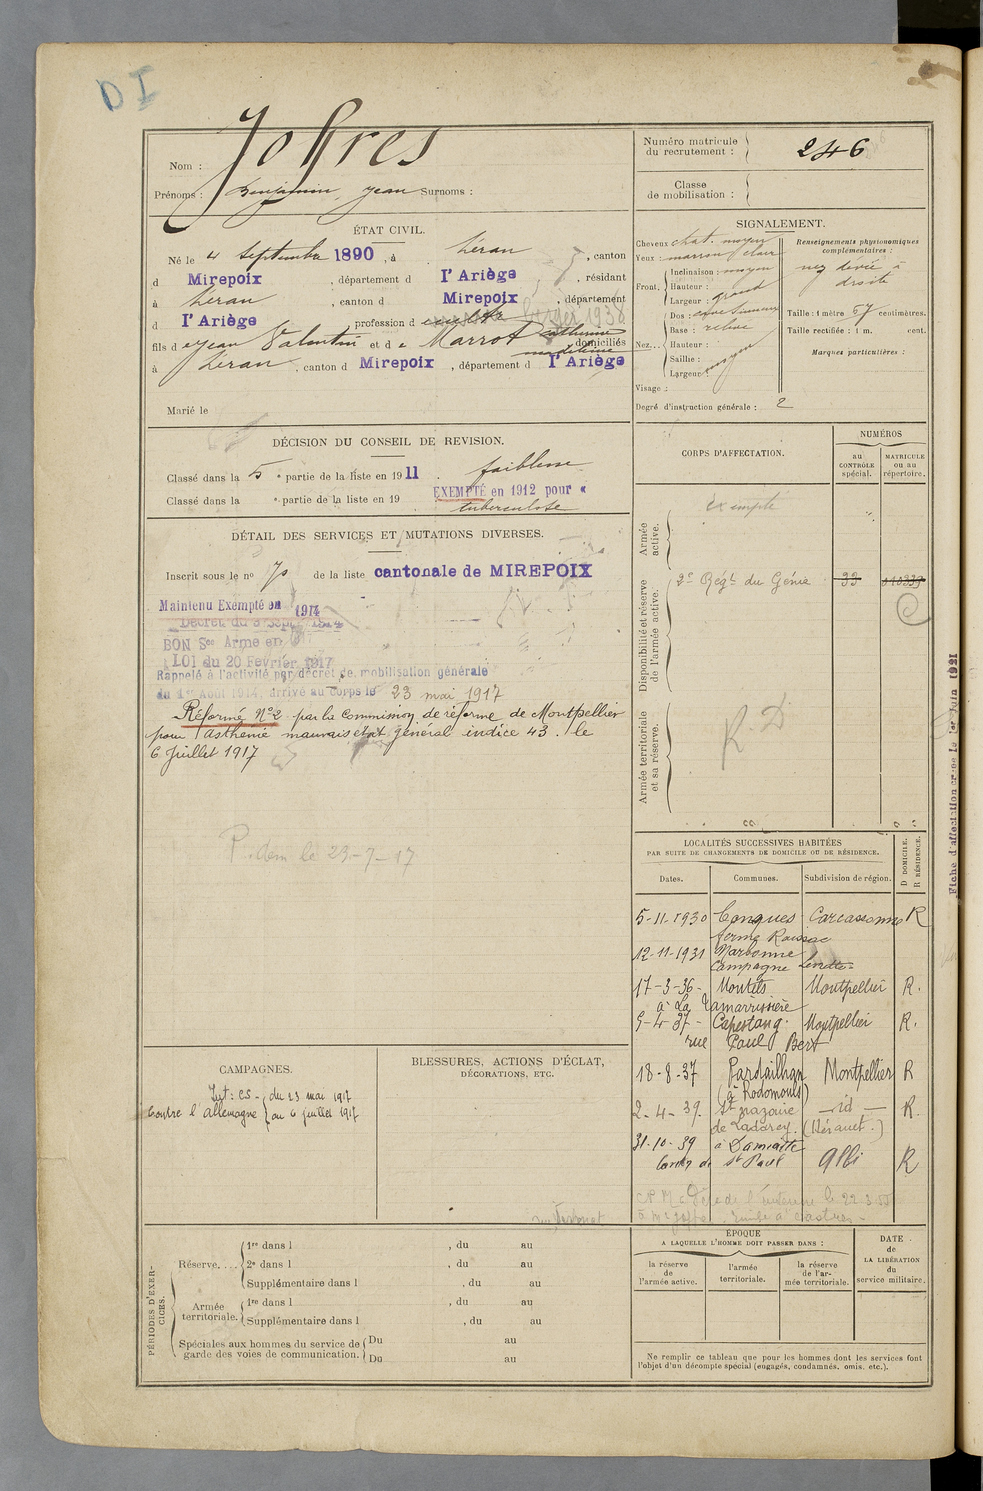 D I
Nom : Jofres
Prénoms : Benjamin, Jean Surnoms :
Numéro matricule
du recrutement : 246
Classe
de mobilisation :
ÉTAT CIVIL.
Né le 4 Septembre 1890, à Léran, canton
d Mirepoix, département d l'Ariège, résidant
à Léran, canton d Mirepoix, département
d l'Ariège, profession d
fils d e Jean Valentin et d e Marrot Catherine
Madeleine domiciliés
à Léran, canton d Mirepoix, département d l'Ariège
Marié le
SIGNALEMENT.
Cheveux chat. moyen
Yeux : marron clair
Front. Inclinaison : moyen
Hauteur :
Largeur : grand
Nez... Dos :
Base : relevé
Hauteur :
Saillie :
Largeur : moyen
Visage :
Degré d'instruction générale : 2
Renseignements physionomiques
complémentaires :
nez dévié à
droite
Taille : 1 mètre 67 centimètres.
Taille rectifiée : 1 m. cent.
Marques particulières :
DÉCISION DU CONSEIL DE REVISION.
Classé dans la 5 e partie de la liste en 1911 faiblesse
Classé dans la e partie de la liste en 19 EXEMPTÉ en 1912 pour «
tuberculose
DÉTAIL DES SERVICES ET MUTATIONS DIVERSES.
Inscrit sous le no 70 de la liste cantonale de MIREPOIX
Maintenu Exempté en 1914
Décret du 9 Sept. 1914
BON Sce Armé en
LOI du 20 Février 1917
Rappelé à l'activité par décret de mobilisation générale
du 1er Août 1914, arrivé au corps le 23 mai 1917
Réformé No 2 par la Commission de réforme de Montpellier
pour asthénie mauvais état général indice 43. le
6 Juillet 1917
P. dem le 29-7-17
CORPS D'AFFECTATION.
NUMÉROS
au
CONTRÔLE
spécial.
MATRICULE
ou au
répertoire.
Armée
active.
Exempté
Disponibilité et réserve
de l'armée active.
2e Régt du Génie 33
Armée territoriale
et sa réserve.
R. D
LOCALITÉS SUCCESSIVES HABITÉES
PAR SUITE DE CHANGEMENTS DE DOMICILE OU DE RÉSIDENCE.
Dates. Communes. Subdivision de région. D DOMICILE. R RÉSIDENCE.
5-11-1930 Conques Carcassonne R
ferme Roussac
12-11-1931 Narbonne
Campagne
17-3-36- Montels Montpellier R.
à La Tamarissière
5-4-37- Capestang. Montpellier R.
rue Paul Bert
18-8-37 Pardailhan Montpellier R
(à Rodomouls)
2-4-39. St Nazaire — id — R.
de Ladarez. (Hérault.)
31-10-39 à Damiatte
canton de St Paul Albi R
CAMPAGNES.
Int: CS - du 23 mai 1917
Contre l'Allemagne au 6 juillet 1917
BLESSURES, ACTIONS D'ÉCLAT,
DÉCORATIONS, ETC.
PÉRIODES D'EXERCICES.
Réserve.... 1re dans l , du au
2e dans l , du au
Supplémentaire dans l , du au
Armée
territoriale. 1re dans l , du au
Supplémentaire dans l , du au
Spéciales aux hommes du service de
garde des voies de communication. Du au
Du au
ÉPOQUE
A LAQUELLE L'HOMME DOIT PASSER DANS :
la réserve
de
l'armée active.
l'armée
territoriale.
la réserve
de l'ar-
mée territoriale.
DATE
de
LA LIBÉRATION
du
service militaire.
Ne remplir ce tableau que pour les hommes dont les services font
l'objet d'un décompte spécial (engagés, condamnés, omis, etc.).
Fiche d'affectation créée le 1er Juin 1921